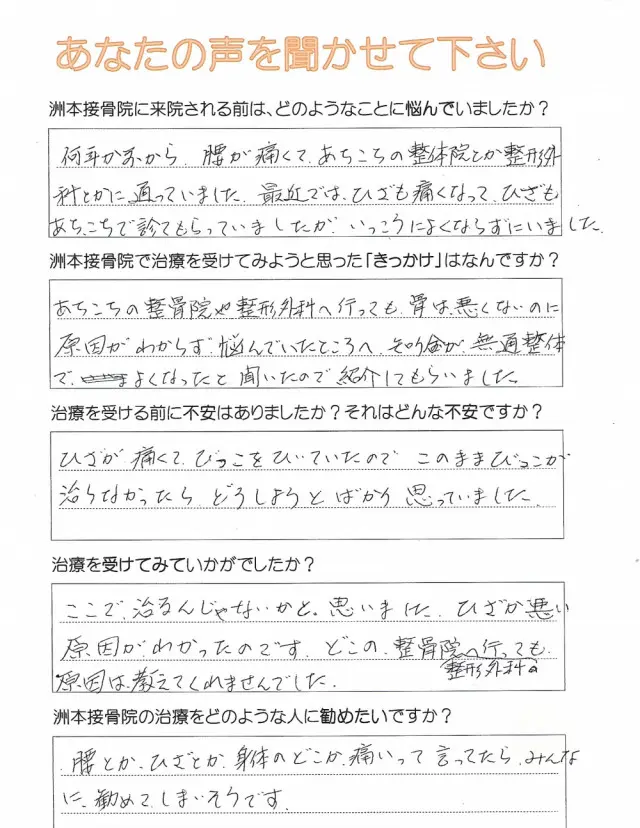 あなたの声を聞かせて下さい
洲本接骨院に来院される前は、どのようなことに悩んでいましたか？
何年か前から、腰が痛くて、あちこちの整体院とか整形外
科とかに、通っていました。最近では、ひざも痛くなって、ひざも
あちこちで診てもらっていましたが、いっこうによくならずにいました。
洲本接骨院で治療を受けてみようと思った「きっかけ」はなんですか？
あちこちの整骨院や整形外科へ行っても、骨は悪くないのに
原因がわからず、悩んでいたところへ、知り合が、無通整体
で、よくなったと聞いたので紹介してもらいました。
治療を受ける前に不安はありましたか？それはどんな不安ですか？
ひざが痛くて、びっこをひいていたので このままびっこが
治らなかったら、どうしようとばかり思っていました。
治療を受けてみていかがでしたか？
ここで、治るんじゃないかと。思いました。ひざが悪い
原因がわかったのです。どこの、整骨院へ行っても
整形外科の
原因は、教えてくれませんでした。
洲本接骨院の治療をどのような人に勧めたいですか？
腰とか、ひざとか、身体のどこか、痛いって言ってたら、みんな
に、勧めてしまいそうです。